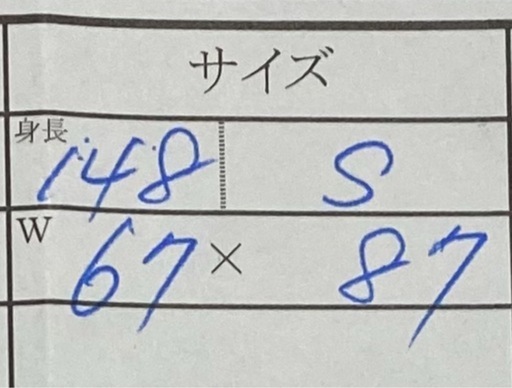 サイズ
身長 148 S
W 67 × 87